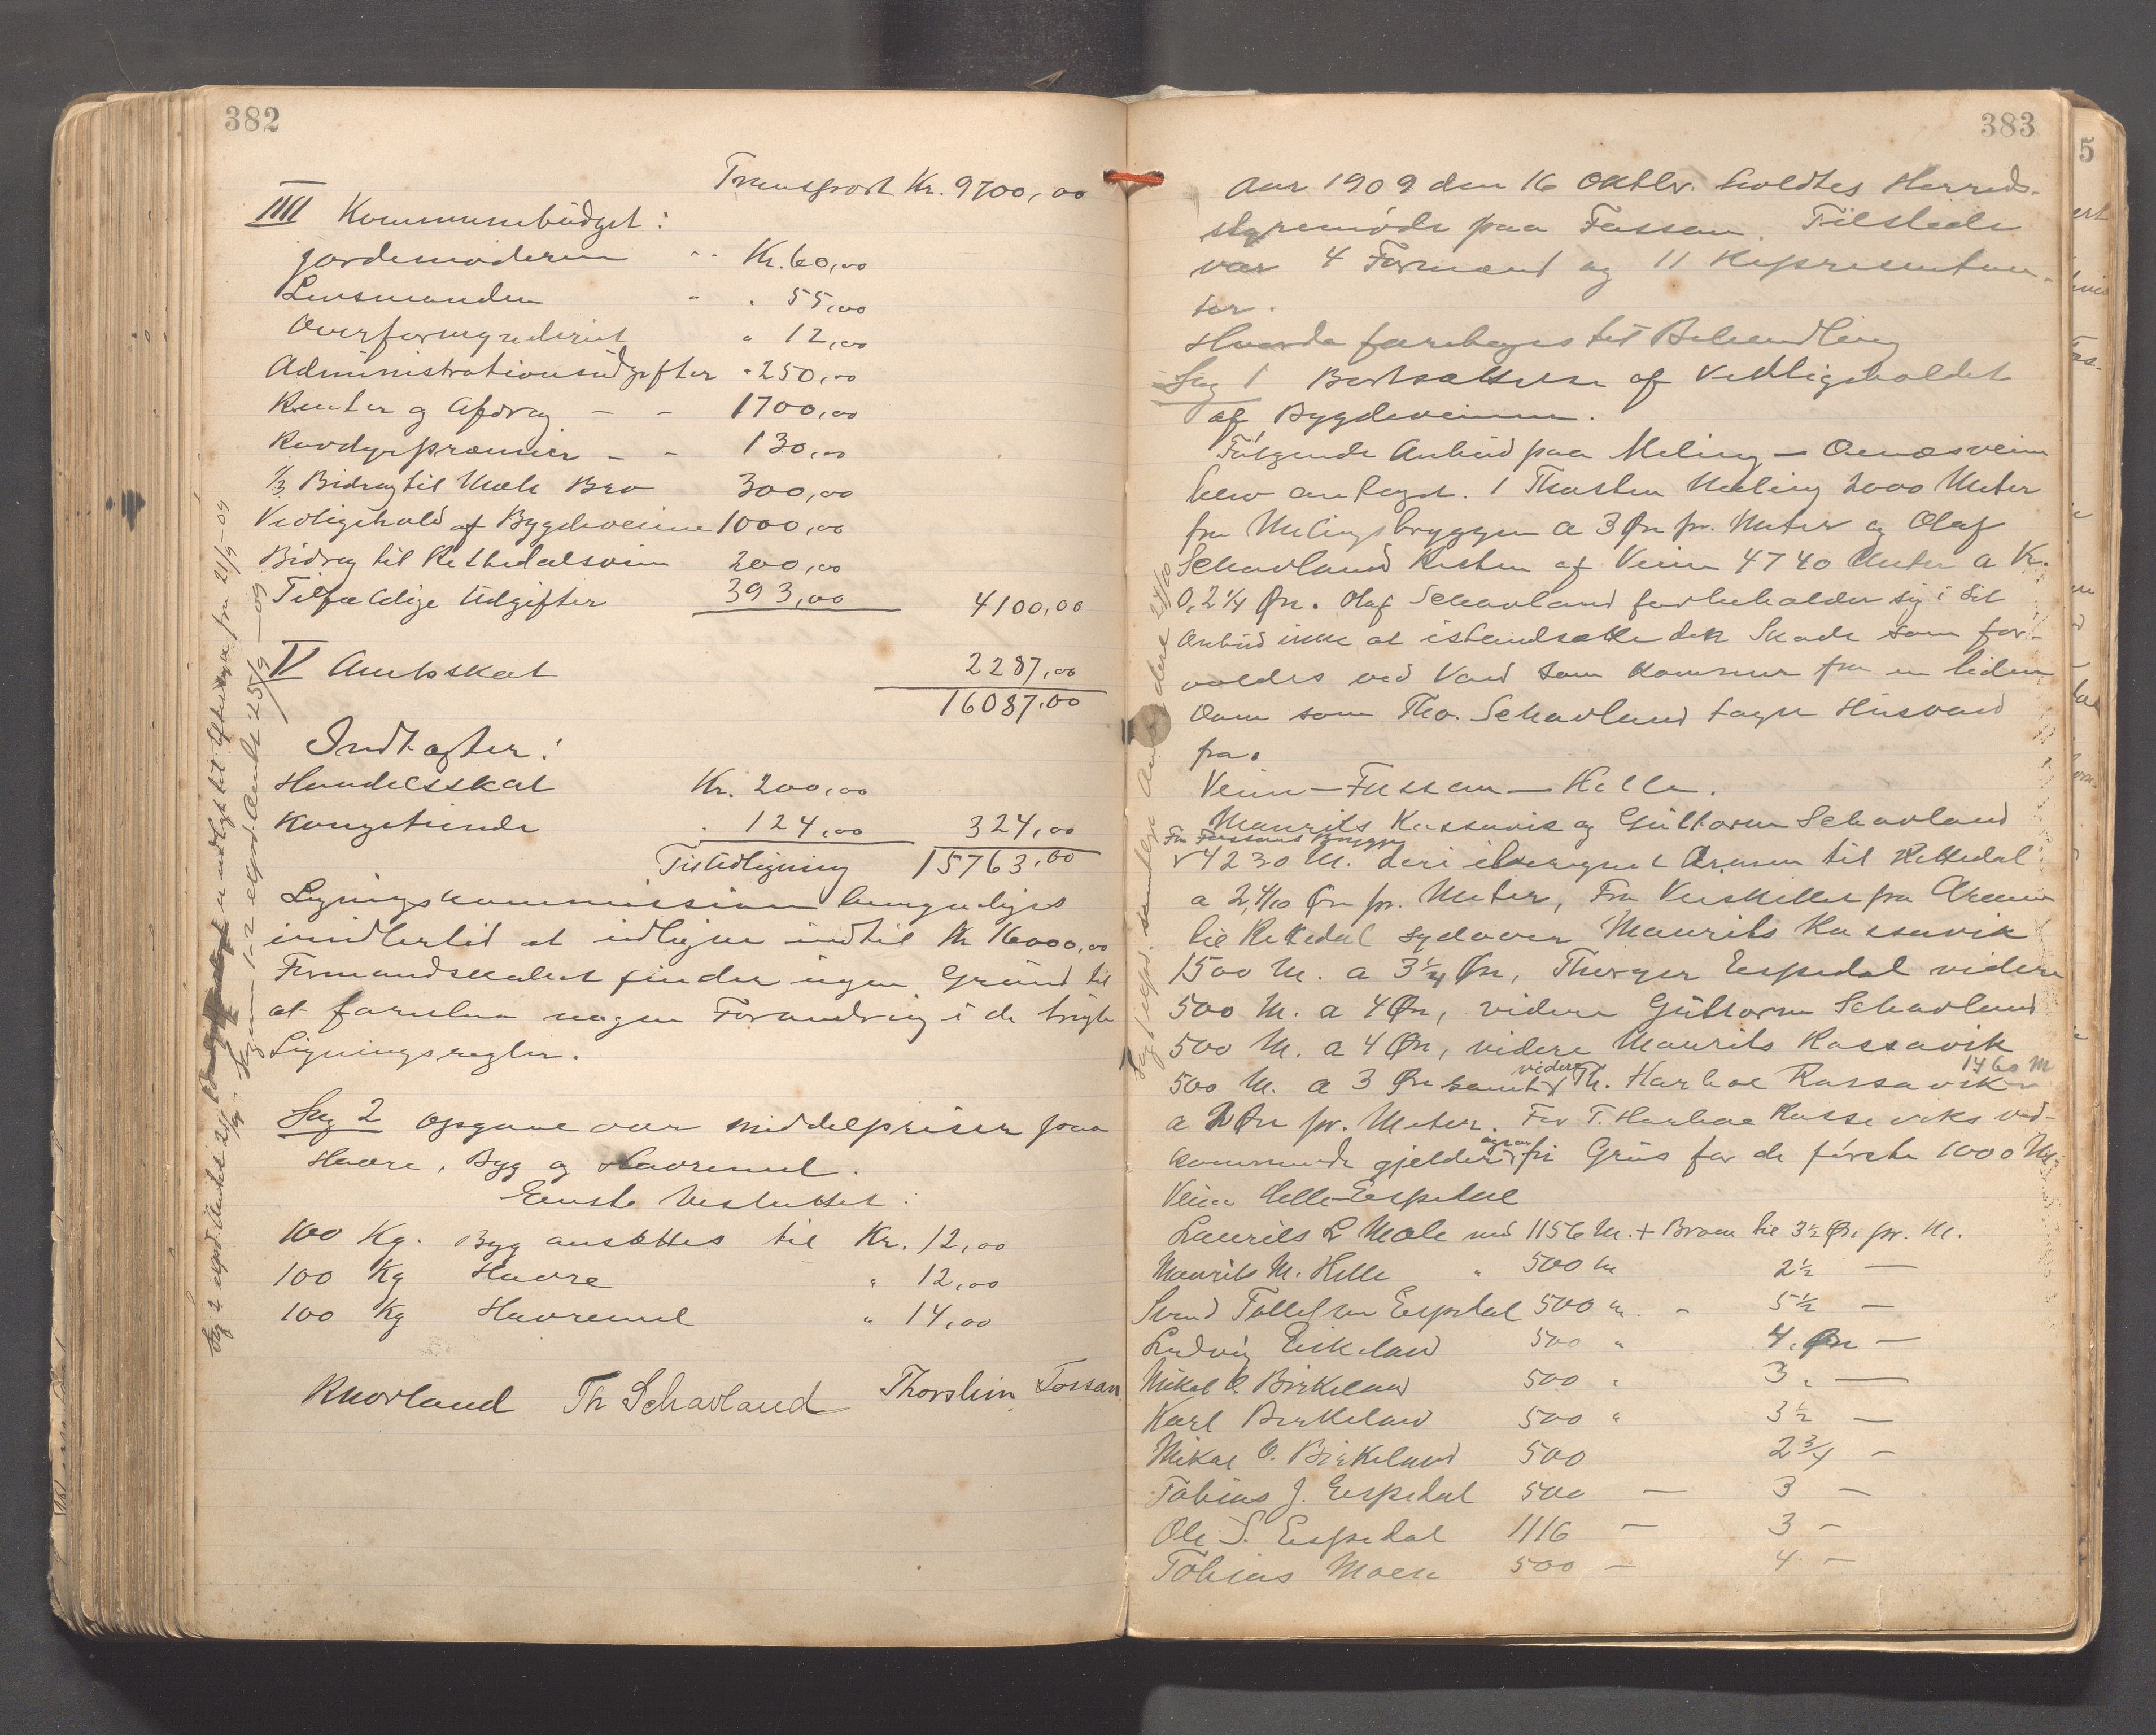 382
Transport Kr. 9700,00
IIII Kommunebudget:
Jordemoderen " " Kr. 60,00
Lensmanden " " 55,00
Overformynderiet " 12,00
Administrationsudgifter " 250,00
Renter og Afdrag – – 1700,00
Rovdyrpræmier – – 130,00
1/3 Bidrag til Mæle Bro 300,00
Vedligehold af Bygdeveiene 1000,00
Bidrag til Rettedalsvein 200,00
Tilfældige Udgifter 393,00 4100,00
V Amtsskat 2287,00
16087,00
Indtægter:
Handelsskat Kr. 200,00
Kongetiende " 124,00 324,00
Til Udligning 15763,00
Ligningskommissionen bemyndiges
imidlertid at udligne indtil Kr 16000,00
Formandskabet finder ingen Grund til
at foreslaa nogen Forandring i de brugte
Ligningsregler.
Sag 2 Opgave over Middelpriser paa
Havre, Byg og Havremel.
Eenst. besluttet:
100 Kg. Byg ansættes til Kr. 12,00
100 Kg Havre " 12,00
100 Kg Havremel " 14,00
RNorland Th Scharland Thorstein Fossan
383
Aar 1909 den 16 Oktbr. holdtes Herreds-
styremøde paa Fossan. Tilstede
var 4 Formænd og 11 Repræsentan-
ter.
Hvorda foretoges til Behandling
Sag 1 Bortsættelse af Vedligeholdet
af Bygdeveiene.
Følgende Anbud paa Meling – Oanæsveien
blev antaget. 1 Thorsten Meling 2000 Meter
fra Melingsbryggen a 3 Øre pr. Meter og Olaf
Scharland Resten af Veien 4740 Meter a Kr.
0,2 1/4 Øre. Olaf Scharland forbeholder sig i sit
Anbud ikke at istandsætte den Skade som for-
voldes ved Vand som kommer fra en liden
Dam som Tho. Scharland tager Husvand
fra.
Veien – Fossan – Helle.
Maurits Rossavik og Guttorm Scharland
Fra Fossans Brygge
4230 M. deri iberegnet Armen til Rettedal
a 2,4/10 Øre pr. Meter, Fra Veiskillet fra Armen
til Rettedal sydover Maurits Rossavik
1500 M. a 3 1/4 Øre, Thorger Espedal videre
500 M. a 4 Øre, videre Guttorm Scharland
500 M. a 4 Øre, videre Maurits Rossavik
500 M. a 3 Øre samt videre Th. Harboe Rossavik 1460 M
a 2 Øre pr. Meter. For T. Harboe Rossaviks ved-
kommende gjelder ogsaa fri Grus for de første 1000 M.
Veien Helle-Espedal
Laurits L Mæle med 1156 M. + Broen til 3 1/2 Øre pr. M.
Maurits M. Helle " 500 m 2 1/2 —
Svend Tollefsen Espedal 500 m. - 5 1/2 —
Ludvig Eikeland 500 " 4. Øre —
Mikal O. Birkeland 500 " 3. —
Karl Birkeland 500 " 3 1/2 —
Mikal O. Birkeland 500 2 3/4 –
Tobias J. Espedal 500 — 3 –
Ole S. Espedal 1116 — 3 –
Tobias Moen 500 — 4 –